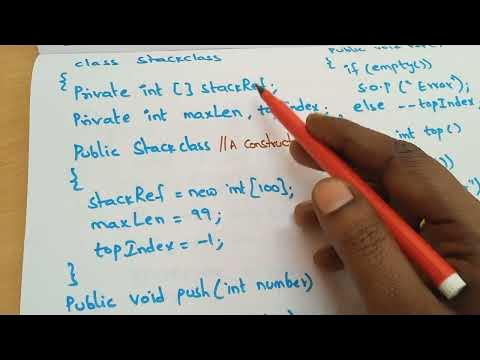 class Stackclass
{
Private int [] stackRef;
Private int maxLen, topIndex;
Public Stackclass //A Construct
{
stackRef = new int[100];
maxLen = 99;
topIndex = -1;
}
Public void push(int number)
Public void
{
if (empty())
S.O.P ("Error");
else --topIndex;
int top()